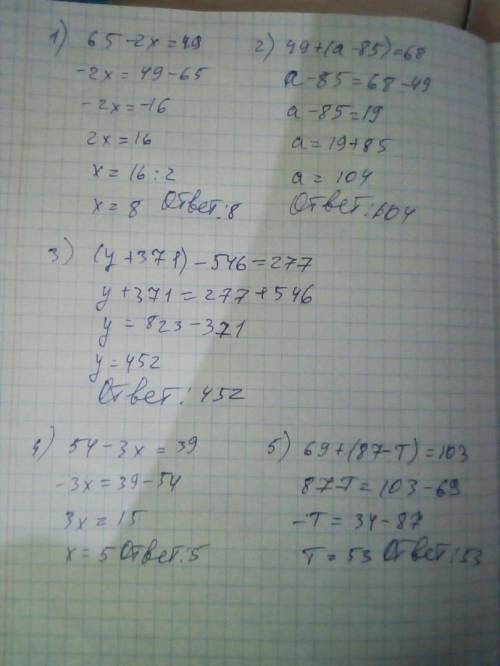 1) 65-2x=49
-2x=49-65
-2x=-16
2x=16
x=16:2
x=8 Ответ:8
2) 49+(a-85)=68
a-85=68-49
a-85=19
a=19+85
a=104
Ответ:104
3) (y+371)-546=277
y+371=277+546
y=823-371
y=452
Ответ:452
4) 54-3x=39
-3x=39-54
3x=15
x=5 Ответ:5
5) 69+(87-T)=103
87-T=103-69
-T=34-87
T=53 Ответ:53